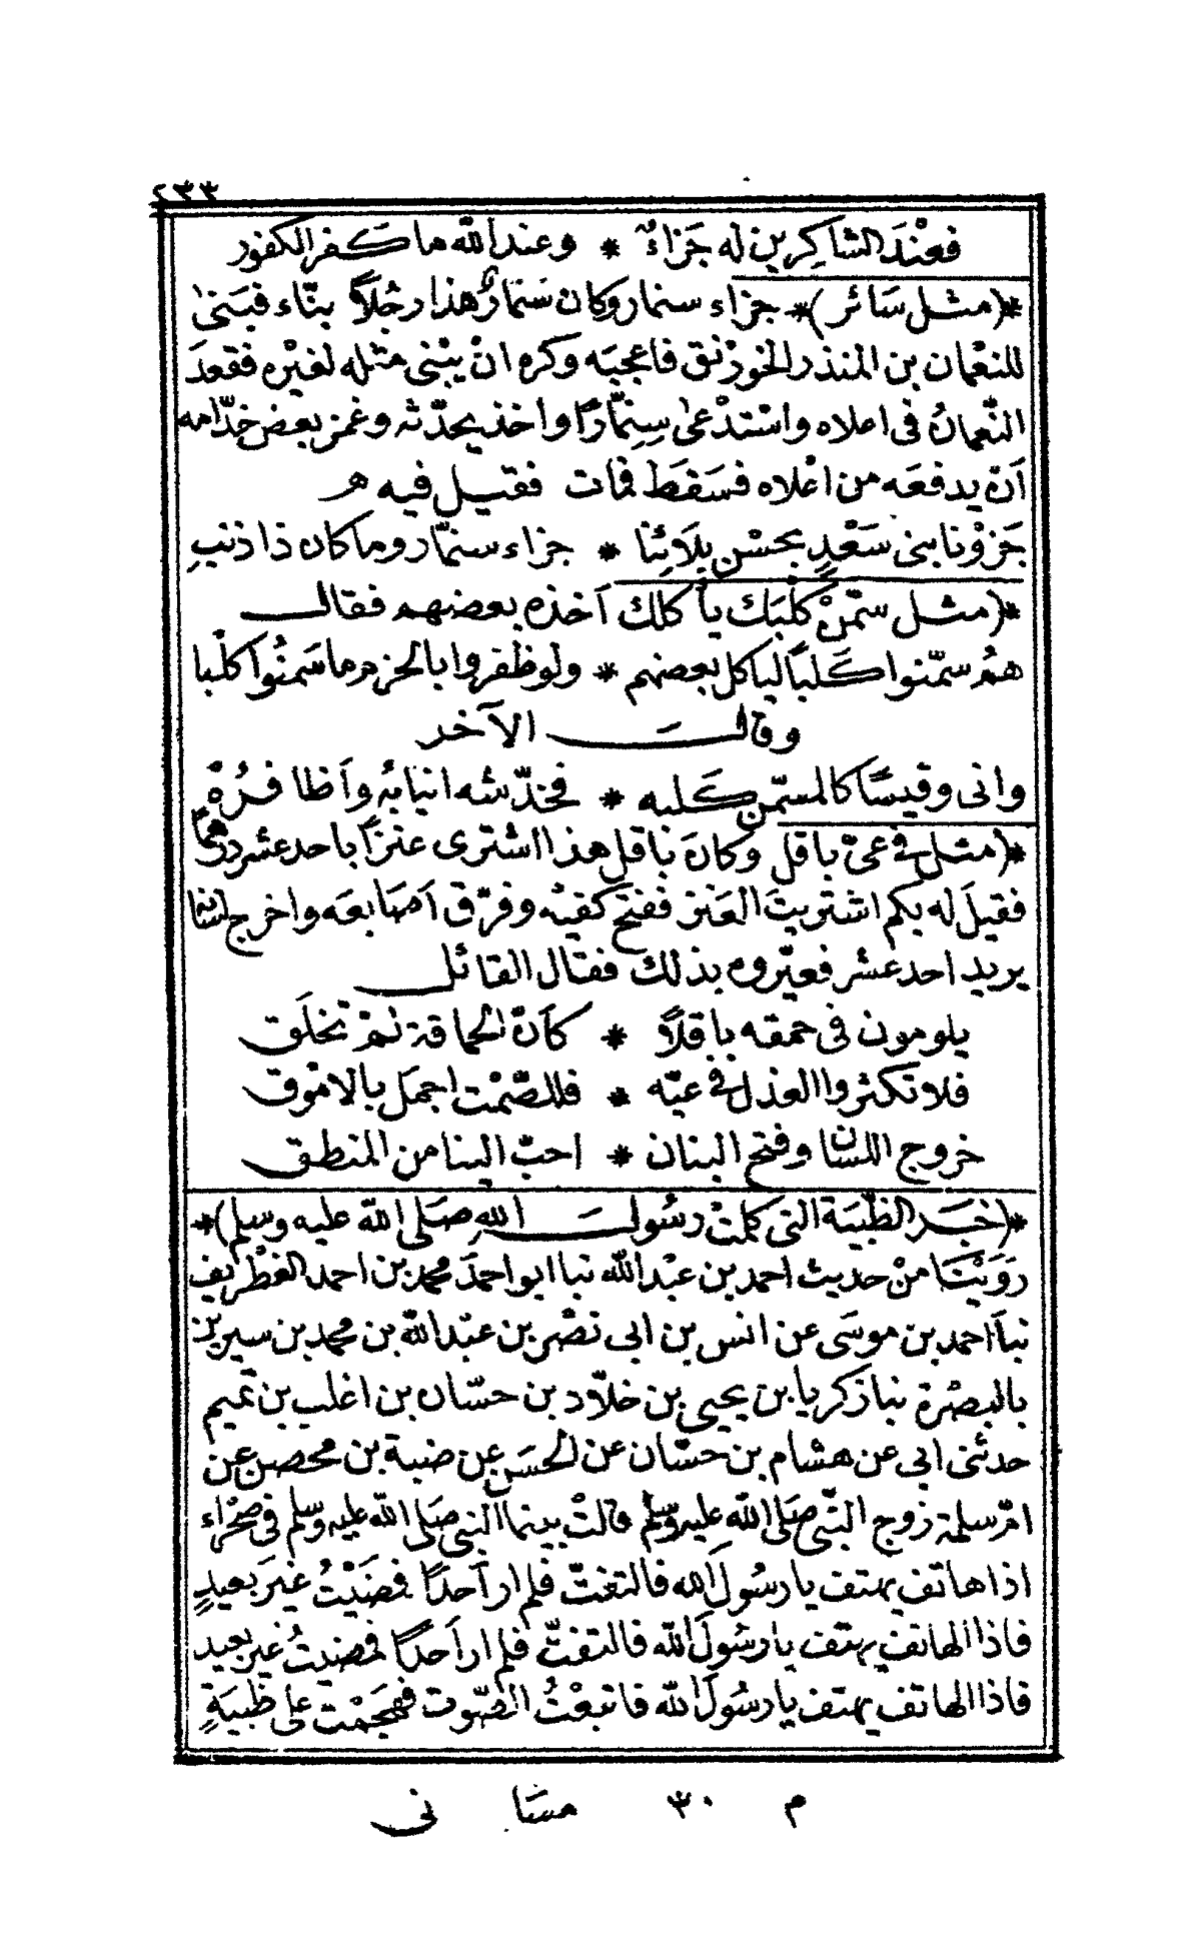 ٢٣٣
فعِنْدَ الشاكِرين له جَزاءٌ * وعند الله ما كفر الكفور
*(مثل سَائر)* جزاء سنمار وكان سَنمارُ هذا رجُلاً بنّاء فبَنىٰ
للنعْمان بن المنذر الخوَرْنق فاعجبَه وكره انْ يبْنى مثله لغيْره فقعدَ
النّعمانُ فى اعلاه واسْتدْعىٰ سِنِمّارًا واخذ يحدّثه وغمز بعض خدّامه
اَنْ يدفعَه من اعْلاه فسَقَط فمات فقيل فيه هـ
جَزوْنا بنى سَعْدٍ بحسْن بلَائِنا * جزاء سنمّار وما كان ذا ذنبِ
*(مثل سمّنْ كلْبَك ياْكلك اَخذه بعضهم فقال
همُ سمّنوا كلبًا لياكل بعضهم * ولو ظفروا بالحزم ما سَمنُوا كلْبا
وقالَ الآخر
وانى وقيسًا كالمسمّن كَلبه * فخدّشه انيابُه واَظافرُهْ
*(مثل فى عىّ باقل وكانَ باقل هذا اشترى عنزًا باحد عشر درهمًا
فقيلَ له بكم اشتريتَ العَنز ففتح كفيْه وفرّق اَصَابعَه واخرج لسَانه
يريد احد عشر فعيّروه بذلك فقال القائل
يلومون فى حمقه باقلاً * كأَنّ الحماقة لمْ تخلَق
فلا تكثروا العذل فى عيّه * فللصّمْت اجمَل بالامْوق
خروج اللسَان وفتح البنان * احبّ الينا من المنطق
*(خبَر الظّبيَة التى كلمتْ رسُولَ اللهِ صَلى الله عليه وسلم)*
رَوَيْنَا منْ حديث احمد بن عبْد الله نبا ابو احمدَ محمد بن احمد الغطْريف
نبأ احمد بن موسَى عن انس بن ابى نصْر بن عبْد الله بن محمد بن سيرين
بالبصْرة نبا زكريا بن يحيى بن خلاّد بن حسّان بن اغلب بن تميم
حدثنى ابى عن هشام بن حسّان عن الحسَن عن ضبة بن محصن عن
امّ سلمة زوج النّبى صَلى الله عليه وسّلم قالتْ بينما النبى صَلى الله عليه وسلم فى صحْراء
اذا هاتف يهتف يا رسُولَ الله فالتفتّ فلم ار اَحدًا فمضَيْتُ غيرَ بعيدٍ
فاذا الهاتف يهتف يا رسُولَ الله فالتفتّ فلم ار اَحدًا فمضيتُ غير بعيد
فاذا الهاتف يهتف يا رسُولَ الله فاتبعْتُ الصّوت فهجَمْت على ظبيَةٍ
م ٣٠ مسَا نى